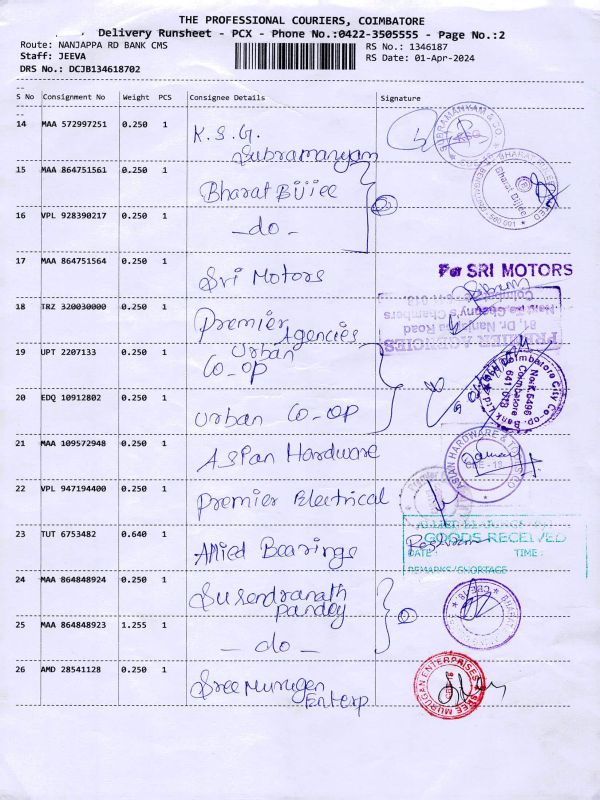 THE PROFESSIONAL COURIERS, COIMBATORE
Delivery Runsheet - PCX - Phone No.:0422-3505555 - Page No.:2
Route: NANJAPPA RD BANK CMS
RS No.: 1346187
Staff: JEEVA
RS Date: 01-Apr-2024
DRS No.: DCJB134618702
S No Consignment No Weight PCS Consignee Details Signature
14 MAA 572997251 0.250 1 K.S.G. Subramanyam
SUBRAMANYAM & CO
KSG
15 MAA 864751561 0.250 1 Bharat Bijlee
BHARAT BIJLEE LIMITED
Bharat Bijlee
16 VPL 928390217 0.250 1 - do -
17 MAA 864751564 0.250 1 Sri Motors
For SRI MOTORS
18 TRZ 320030000 0.250 1 Premier Agencies
PREMIER AGENCIES
81, Dr. Nanjappa Road
19 UPT 2207133 0.250 1 Urban Co-op
Coimbatore City Co-op. Bank Ltd
No.K.5496
Coimbatore
641 018
20 EDQ 10912802 0.250 1 Urban Co-op
21 MAA 109572948 0.250 1 ASPan Hardware
ASIAN HARDWARE & CO
CBE-18
22 VPL 947194400 0.250 1 Premier Electrical
23 TUT 6753482 0.640 1 Allied Bearings
ALLIED BEARINGS
GOODS RECEIVED
DATE : TIME :
REMARKS/SHORTAGE
24 MAA 864848924 0.250 1 Surendranath Pandey
CBE-18
25 MAA 864848923 1.255 1 - do -
26 AMD 28541128 0.250 1 Sree Murugan Enterp
SREE MURUGAN ENTERPRISES